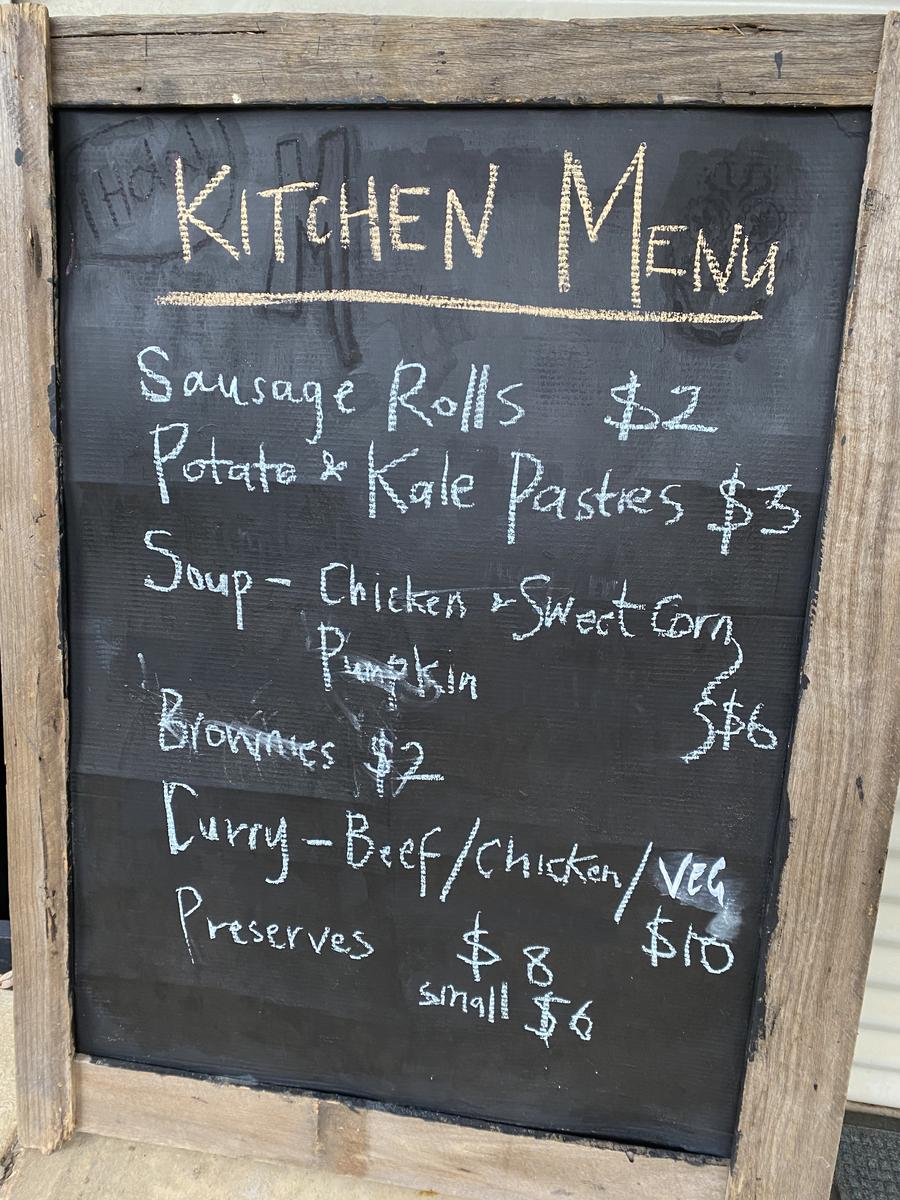 KITCHEN MENU
Sausage Rolls $2
Potato & Kale Pasties $3
Soup - Chicken & Sweet Corn
Pumpkin
$6
Brownies $2
Curry - Beef/Chicken/VEG
$10
Preserves $8
small $6